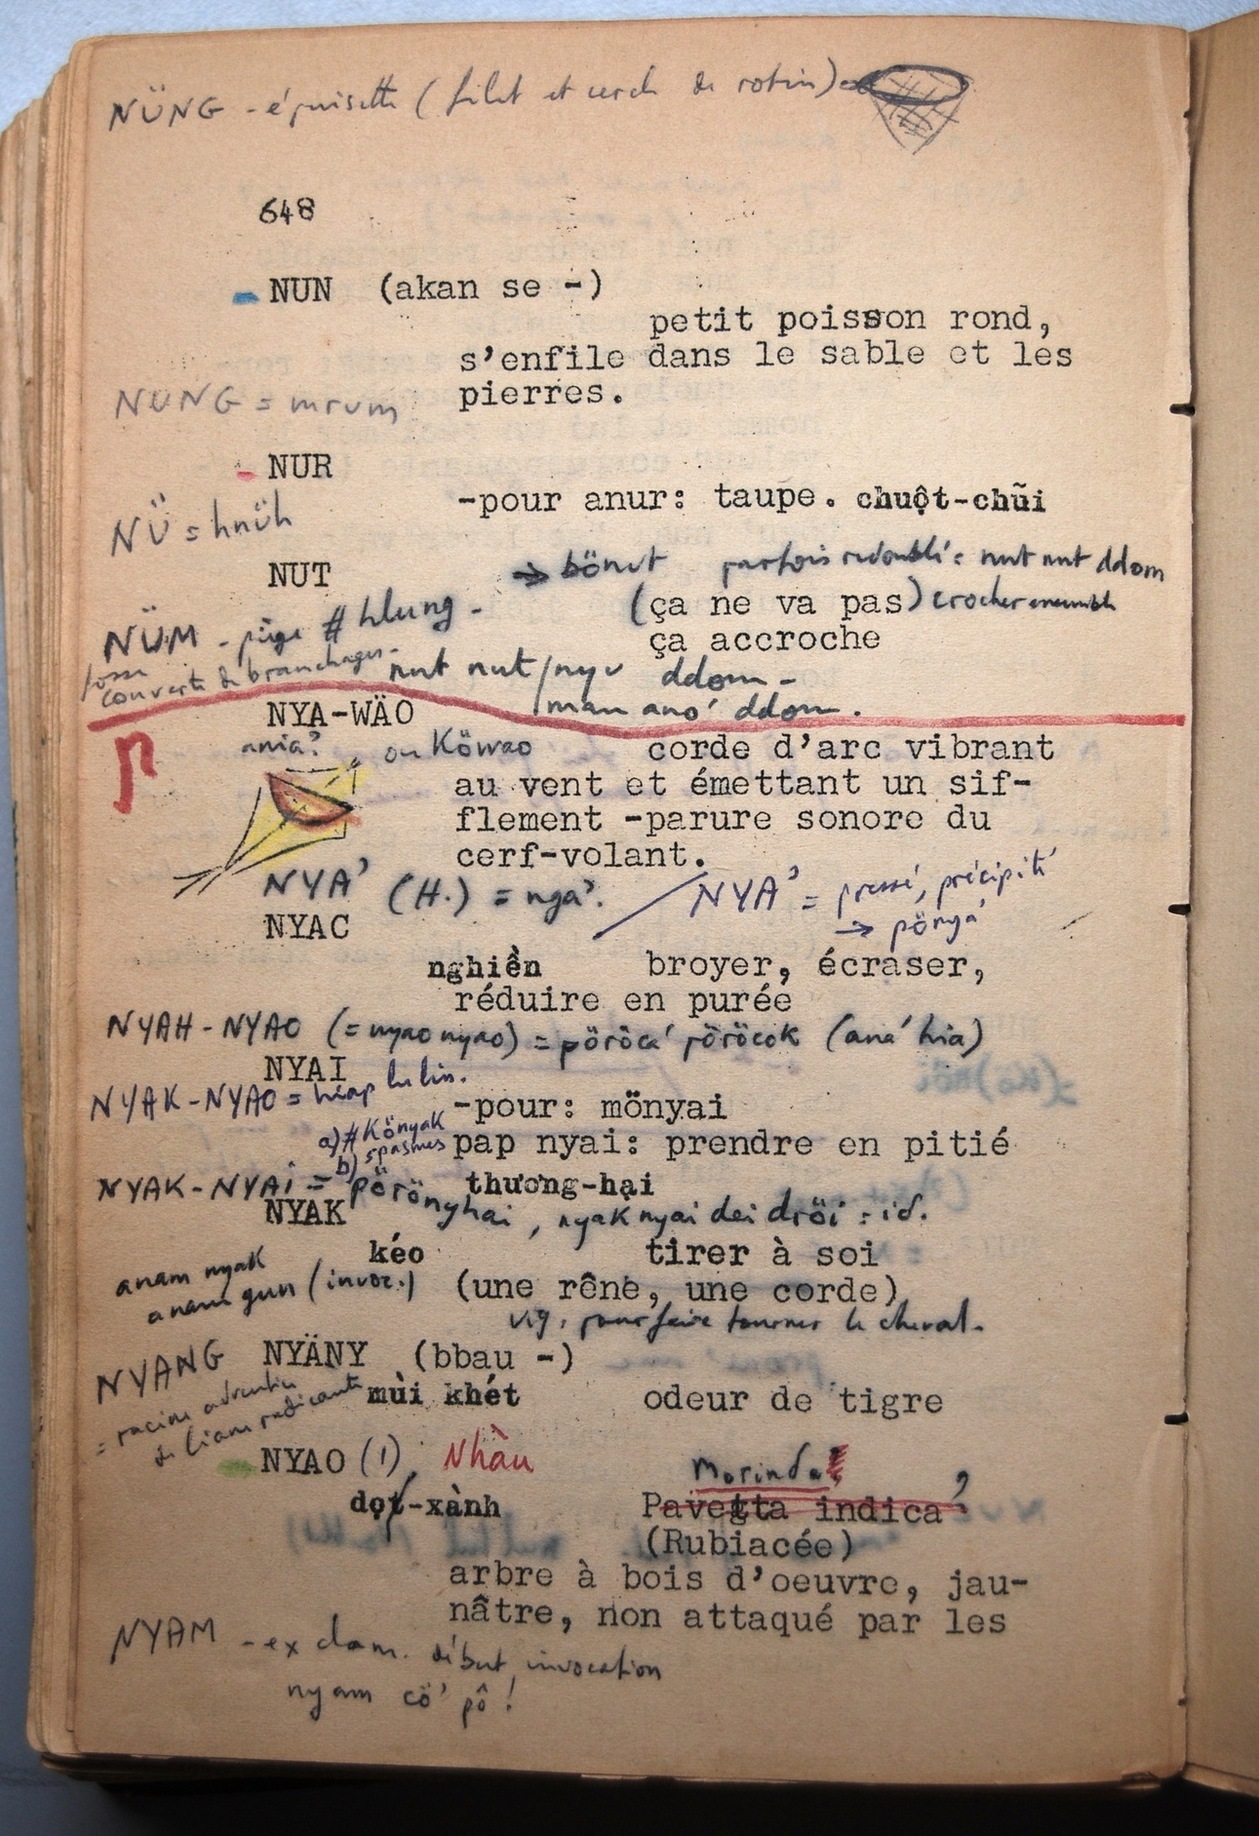 NÜNG - épuisette (filet et cercle de rotin)
648
NUN (akan se -)
petit poisson rond,
s'enfile dans le sable et les
pierres.
NUNG = mrum
NUR
-pour anur: taupe. chuột-chũi
NÜ = hnüh
NUT → bönut parfois redoublé: nut nut ddom
(ça ne va pas) crocher ensemble
ça accroche
NÜM - piège # hlung -
fosse
couverte de branchages -
nut nut / nyu ddom -
man ano' ddom.
NYA-WÄO
ania? ou Köwao
corde d'arc vibrant
au vent et émettant un sif-
flement -parure sonore du
cerf-volant.
NYA' (H.) = nga'.
NYA' = pressé, précipité
→ pönya'
NYAC
nghiền broyer, écraser,
réduire en purée
NYAH-NYAO (= nyao nyao) = pörôca' pöröcok (ana' hia)
NYAI
NYAK-NYAO =
-pour: mönyai
a) # Könyak
b) spasmes
pap nyai: prendre en pitié
thương-hại
NYAK-NYAI = pörönyhai, nyak nyai dei dröi = id.
NYAK
kéo tirer à soi
anam nyak
anam gun (invoc.)
(une rêne, une corde)
v.g. pour faire tourner le cheval.
NYANG
= racine adventice
de liane radicante
NYÄNY (bbau -)
mùi khét odeur de tigre
NYAO (1) Nhàu
Morinda
dọt-xành Pavetta indica ?
(Rubiacée)
arbre à bois d'oeuvre, jau-
nâtre, non attaqué par les
NYAM - exclam. début invocation
nyam cö' pô !